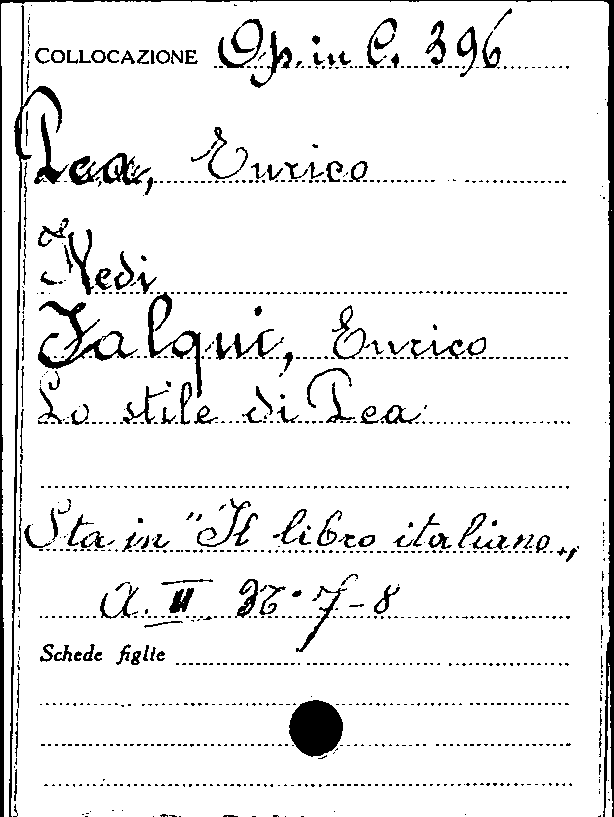 COLLOCAZIONE Op. in C. 396
Pea, Enrico
Vedi
Falqui, Enrico
Lo stile di Pea
Sta in "Il libro italiano„
A. II N. 7-8
Schede figlie